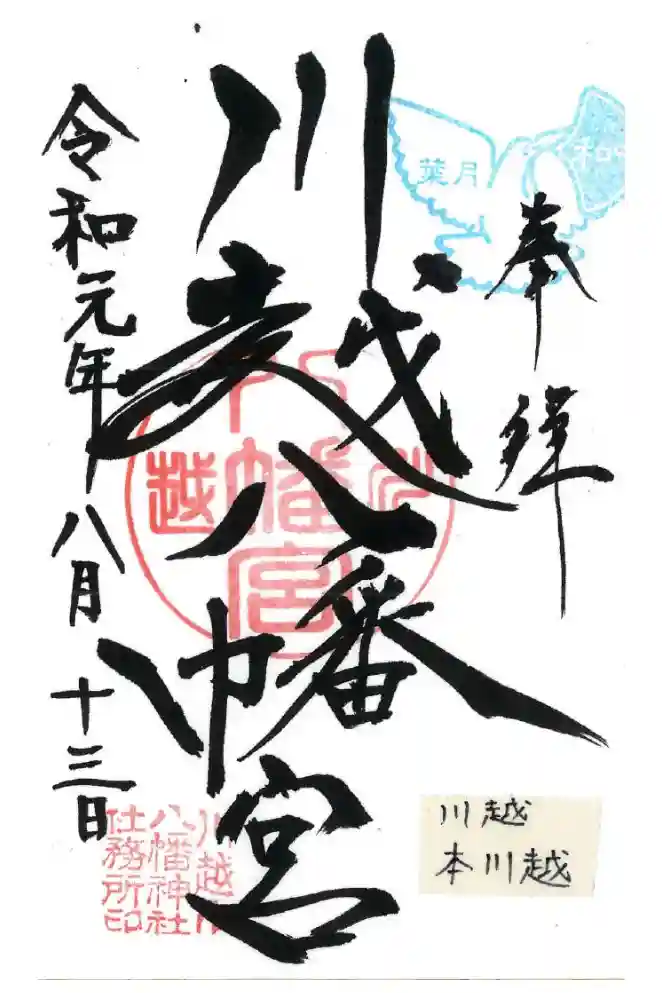 奉拝
葉月
和
川越八幡宮
川越
八幡宮
令和元年八月十三日
川越
八幡神社
社務所印
川越
本川越